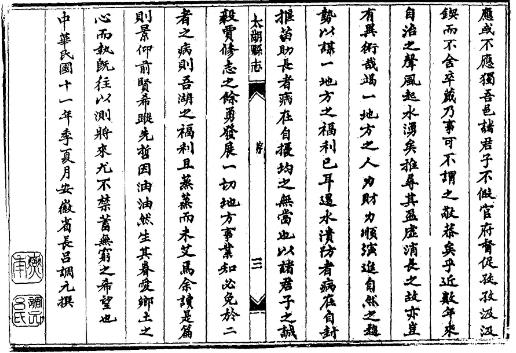 應或不應獨吾邑諸君子不假官府督促孜孜汲汲
鍥而不舍卒蕆乃事可不謂之敬恭矣乎近數年來
自治之聲風起水湧矣推尋其盈虛消長之故亦豈
有異術哉竭一地方之人力財力順強進自然之趨
勢以謀一地方之福利已耳遏水潰防者病在自封
推苗助長者病在自擾均之無當也以諸君子之誠
太湖縣志
序
三
毅賈修志之餘勇發展一切地方事業知必免於二
者之病則吾湖之福利且蒸蒸而未艾焉余讀是篇
則景仰前賢希蹤先哲因油油然生其眷愛鄉土之
心而執既往以測將來尤不禁蓄無窮之希望也
中華民國十一年季夏月安徽省長呂調元撰
調元
呂氏